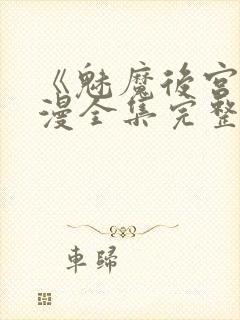 《魅魔後宮
漫全集完整
車歸